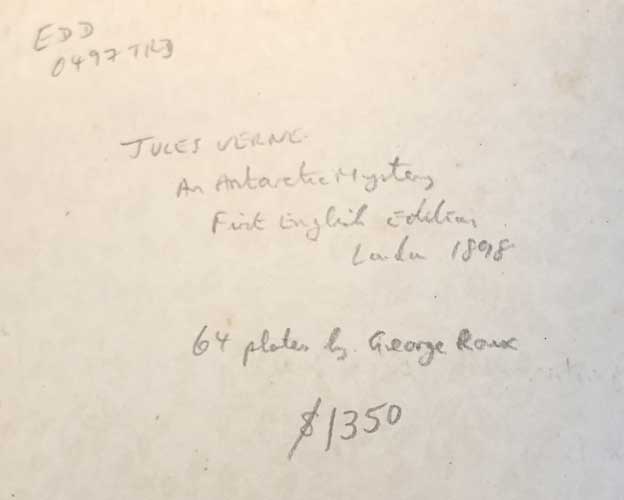 EDD
0497TRD
JULES VERNE.
An Antarctic Mystery
First English Edition
London 1898
64 plates by George Roux
$1350